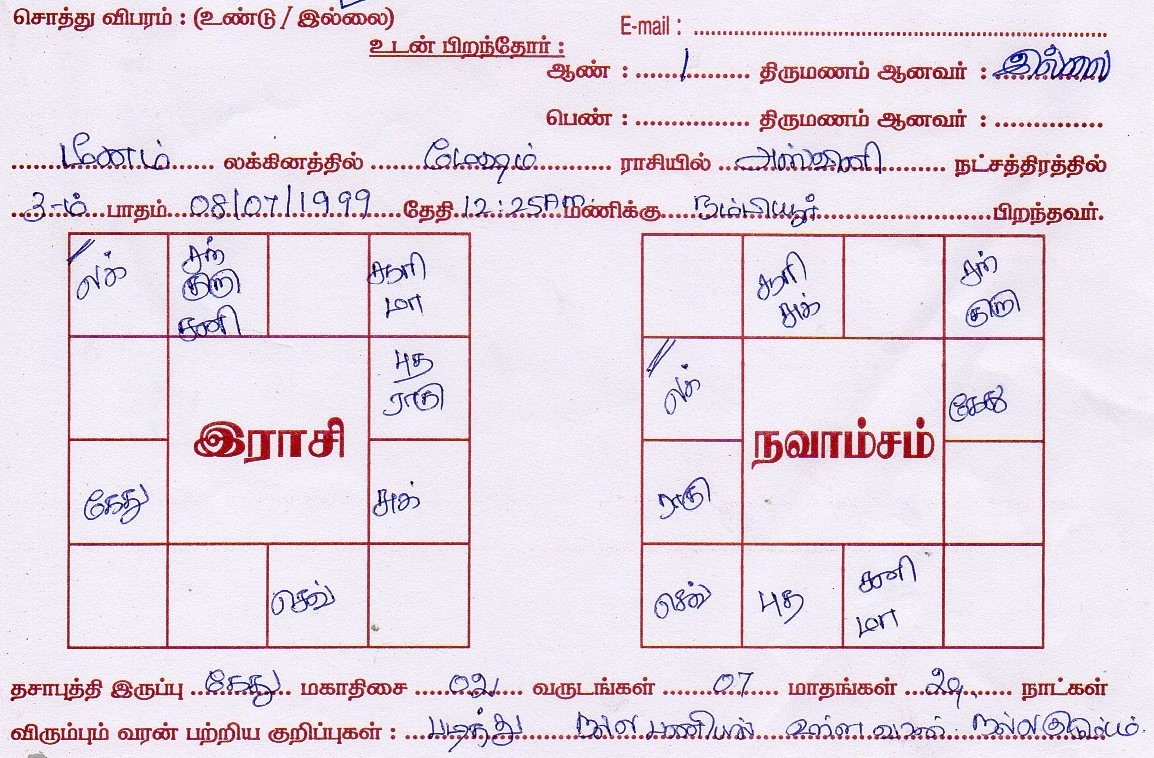 சொத்து விபரம் : (உண்டு / இல்லை)
E-mail :
உடன் பிறந்தோர் :
ஆண் : 1 திருமணம் ஆனவர் : இல்லை
பெண் : திருமணம் ஆனவர் :
மீனம் லக்கினத்தில் மேஷம் ராசியில் அஸ்வினி நட்சத்திரத்தில்
3-ம் பாதம் 08/07/1999 தேதி 12:25AM மணிக்கு நம்பியூர் பிறந்தவர்.
லக்
சந்
குரு
சனி
சூரி
மா
புத
ராகு
இராசி
கேது
சுக்
செவ்
சூரி
சுக்
சந்
குரு
லக்
கேது
நவாம்சம்
ராகு
செவ்
புத
சனி
மா
தசாபுத்தி இருப்பு கேது மகாதிசை 02 வருடங்கள் 07 மாதங்கள் 29 நாட்கள்
விரும்பும் வரன் பற்றிய குறிப்புகள் : படித்து நல்ல பணியில் உள்ள வரன். நல்ல குடும்பம்.